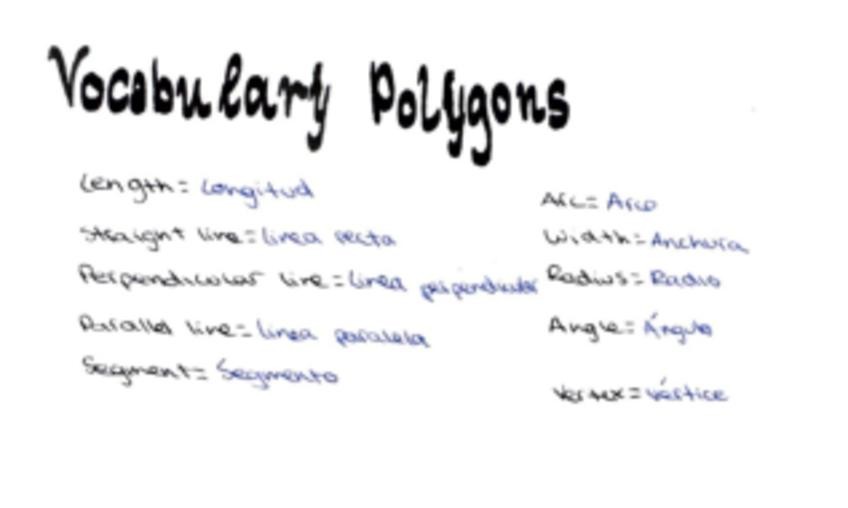 Vocabulary Polygons
Length = Longitud
Straight line = linea recta
Perpendicular line = linea perpendicular
Parallel line = linea paralela
Segment = Segmento
Arc = Arco
Width = Anchura
Radius = Radio
Angle = Ángulo
Vertex = vértice